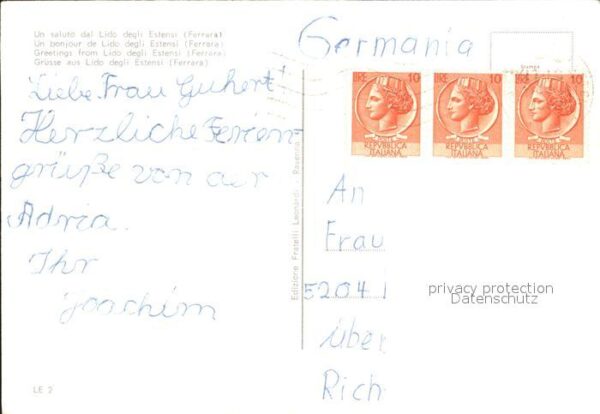 Un saluto dal Lido degli Estensi (Ferrara)
Un bonjour de Lido degli Estensi (Ferrara)
Greetings from Lido degli Estensi (Ferrara)
Grüsse aus Lido degli Estensi (Ferrara)
Germania
Liebe Frau Guhert!
Herzliche Ferien
grüße von der
Adria.
Ihr
Joachim
LE 2
Edizione Fratelli Leonardi - Ravenna
LIRE 10
REPVBBLICA
ITALIANA
LIRE 10
REPVBBLICA
ITALIANA
LIRE 10
REPVBBLICA
ITALIANA
An
Frau
5204 1
über
Rich
privacy protection
Datenschutz